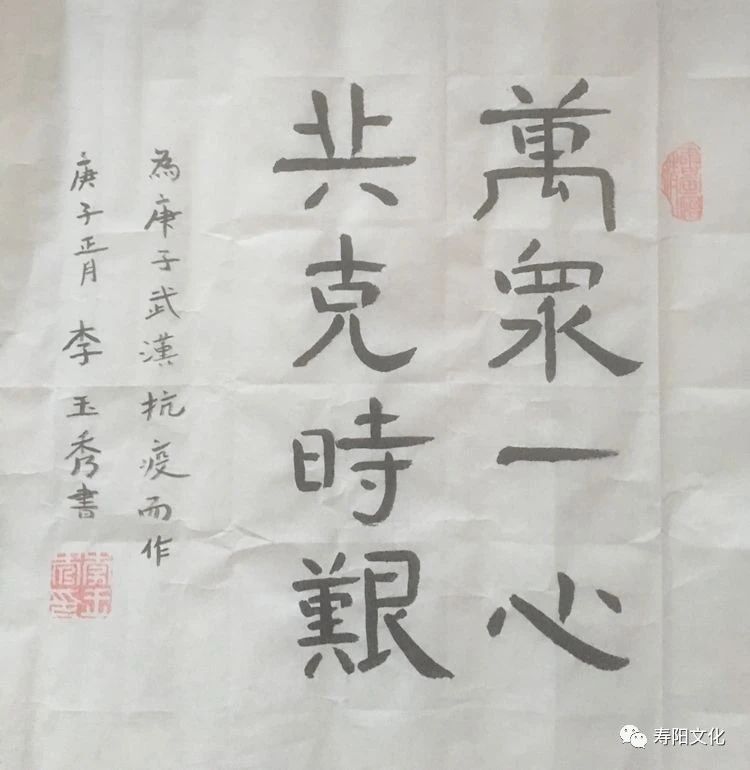 萬眾一心
共克時艱
為庚子武漢抗疫而作
庚子正月 李玉秀書
寿阳文化